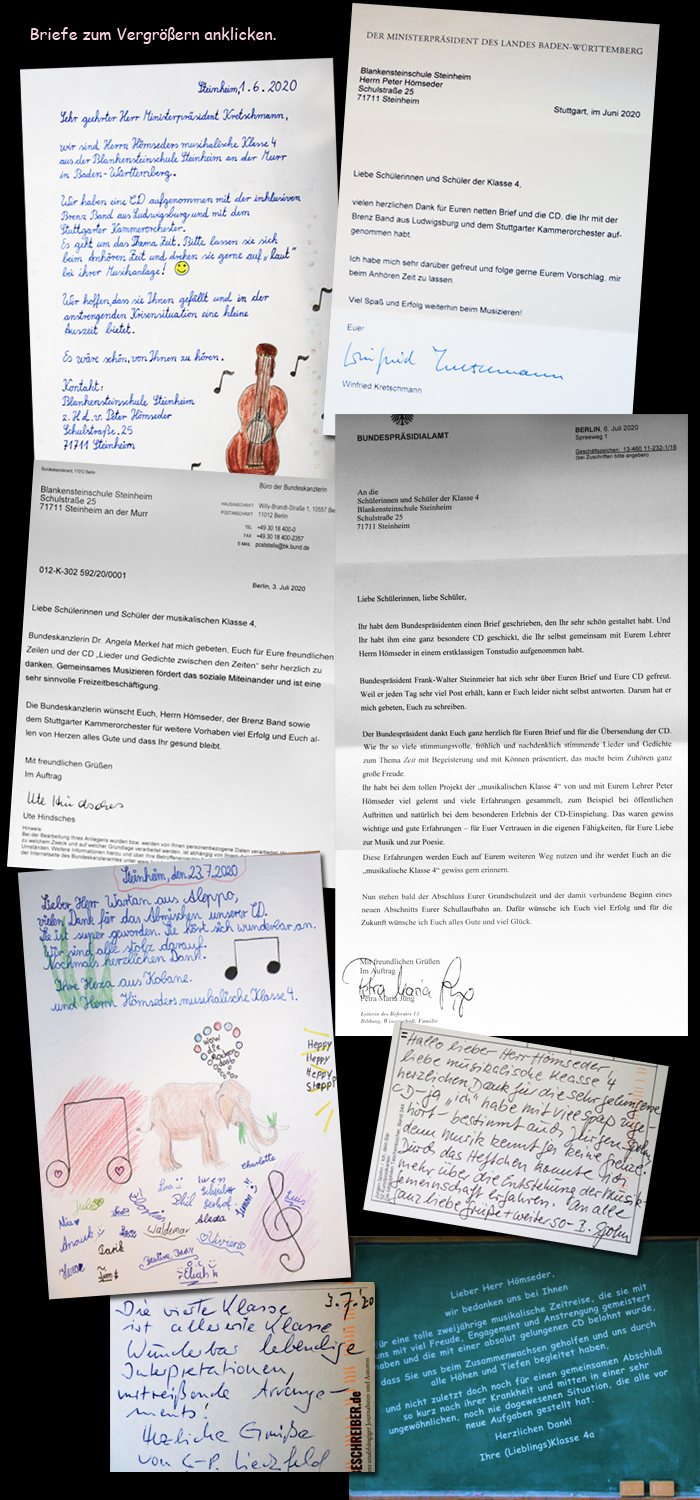 Briefe zum Vergrößern anklicken.
Steinheim, 1.6.2020
Sehr geehrter Herr Ministerpräsident Kretschmann,
wir sind Herrn Hömseders musikalische Klasse 4
aus der Blankensteinschule Steinheim an der Murr
in Baden-Württemberg.
Wir haben eine CD aufgenommen mit der inklusiven
Brenz Band aus Ludwigsburg und mit dem
Stuttgarter Kammerorchester.
Es geht um das Thema Zeit. Bitte lassen sie sich
beim Anhören Zeit und drehen sie gerne auf „laut“
bei ihrer Musikanlage!
Wir hoffen, dass sie Ihnen gefällt und in der
anstrengenden Krisensituation eine kleine
Auszeit bietet.
Es wäre schön, von Ihnen zu hören.
Kontakt:
Blankensteinschule Steinheim
z. Hd. v. Peter Hömseder
Schulstraße 25
71711 Steinheim
DER MINISTERPRÄSIDENT DES LANDES BADEN-WÜRTTEMBERG
Blankensteinschule Steinheim
Herrn Peter Hömseder
Schulstraße 25
71711 Steinheim
Stuttgart, im Juni 2020
Liebe Schülerinnen und Schüler der Klasse 4,
vielen herzlichen Dank für Euren netten Brief und die CD, die Ihr mit der
Brenz Band aus Ludwigsburg und dem Stuttgarter Kammerorchester auf-
genommen habt.
Ich habe mich sehr darüber gefreut und folge gerne Eurem Vorschlag, mir
beim Anhören Zeit zu lassen.
Viel Spaß und Erfolg weiterhin beim Musizieren!
Euer
Winfried Kretschmann
Winfried Kretschmann
Bundeskanzleramt, 11012 Berlin
Blankensteinschule Steinheim
Schulstraße 25
71711 Steinheim an der Murr
Büro der Bundeskanzlerin
HAUSANSCHRIFT Willy-Brandt-Straße 1, 10557 Be
POSTANSCHRIFT 11012 Berlin
TEL +49 30 18 400-0
FAX +49 30 18 400-2357
E-MAIL poststelle@bk.bund.de
012-K-302 592/20/0001
Berlin, 3. Juli 2020
Liebe Schülerinnen und Schüler der musikalischen Klasse 4,
Bundeskanzlerin Dr. Angela Merkel hat mich gebeten, Euch für Eure freundlichen
Zeilen und der CD „Lieder und Gedichte zwischen den Zeiten“ sehr herzlich zu
danken. Gemeinsames Musizieren fördert das soziale Miteinander und ist eine
sehr sinnvolle Freizeitbeschäftigung.
Die Bundeskanzlerin wünscht Euch, Herrn Hömseder, der Brenz Band sowie
dem Stuttgarter Kammerorchester für weitere Vorhaben viel Erfolg und Euch al-
len von Herzen alles Gute und dass Ihr gesund bleibt.
Mit freundlichen Grüßen
Im Auftrag
Ute Hindsches
Ute Hindsches
Hinweis:
BUNDESPRÄSIDIALAMT
BERLIN, 6. Juli 2020
Spreeweg 1
Geschäftszeichen: 13-460 11-232-1/18
(bei Zuschriften bitte angeben)
An die
Schülerinnen und Schüler der Klasse 4
Blankensteinschule Steinheim
Schulstraße 25
71711 Steinheim
Liebe Schülerinnen, liebe Schüler,
Ihr habt dem Bundespräsidenten einen Brief geschrieben, den Ihr sehr schön gestaltet habt. Und
Ihr habt ihm eine ganz besondere CD geschickt, die Ihr selbst gemeinsam mit Eurem Lehrer
Herrn Hömseder in einem erstklassigen Tonstudio aufgenommen habt.
Bundespräsident Frank-Walter Steinmeier hat sich sehr über Euren Brief und Eure CD gefreut.
Weil er jeden Tag sehr viel Post erhält, kann er Euch leider nicht selbst antworten. Darum hat er
mich gebeten, Euch zu schreiben.
Der Bundespräsident dankt Euch ganz herzlich für Euren Brief und für die Übersendung der CD.
Wie Ihr so viele stimmungsvolle, fröhlich und nachdenklich stimmende Lieder und Gedichte
zum Thema Zeit mit Begeisterung und mit Können präsentiert, das macht beim Zuhören ganz
große Freude.
Ihr habt bei dem tollen Projekt der „musikalischen Klasse 4“ von und mit Eurem Lehrer Peter
Hömseder viel gelernt und viele Erfahrungen gesammelt, zum Beispiel bei öffentlichen
Auftritten und natürlich bei dem besonderen Erlebnis der CD-Einspielung. Das waren gewiss
wichtige und gute Erfahrungen – für Euer Vertrauen in die eigenen Fähigkeiten, für Eure Liebe
zur Musik und zur Poesie.
Diese Erfahrungen werden Euch auf Eurem weiteren Weg nutzen und ihr werdet Euch an die
„musikalische Klasse 4“ gewiss gern erinnern.
Nun stehen bald der Abschluss Eurer Grundschulzeit und der damit verbundene Beginn eines
neuen Abschnitts Eurer Schullaufbahn an. Dafür wünsche ich Euch viel Erfolg und für die
Zukunft wünsche ich Euch alles Gute und viel Glück.
Mit freundlichen Grüßen
Im Auftrag
Petra Maria Jung
Leiterin des Referates 13
Bildung, Wissenschaft, Familie
Steinheim, den 23.7.2020
Lieber Herr Wartan aus Aleppo,
vielen Dank für das Abmischen unserer CD.
Sie ist super geworden. Sie hört sich wunderbar an.
Wir sind alle stolz darauf.
Nochmals herzlichen Dank.
Ihre Hêza aus Kobane.
und Herrn Hömseders musikalische Klasse 4.
Wow
die
Heppy
Heppy
Heppy
Charlotte
Phil
Waldemar
Tarik
Anouk
Nia
Eliah
Hallo lieber Herr Hömseder,
liebe musikalische Klasse 4
herzlichen Dank für die sehr gelungene
CD – ja „ich“ habe mit viel Spaß zuge-
hört – bestimmt auch Jürgen
denn Musik kennt ja keine Grenze.
Durch das Heftchen konnte ich
mehr über die Entstehung der Musik-
gemeinschaft erfahren. An alle
ganz liebe Grüße + weiter so –
3.7.'20
Die vierte Klasse
ist allererste Klasse
Wunderbar lebendige
Interpretationen,
mitreißende Arrange-
ments!
Herzliche Grüße
von K-P. Lieckfeld
ESCHREIBER.de
Lieber Herr Hömseder,
wir bedanken uns bei Ihnen
für eine tolle zweijährige musikalische Zeitreise, die sie mit
uns mit viel Freude, Engagement und Anstrengung gemeistert
haben und die mit einer absolut gelungenen CD belohnt wurde,
dass Sie uns beim Zusammenwachsen geholfen und uns durch
alle Höhen und Tiefen begleitet haben,
und nicht zuletzt doch noch für einen gemeinsamen Abschluß
so kurz nach ihrer Krankheit und mitten in einer sehr
ungewöhnlichen, noch nie dagewesenen Situation, die alle vor
neue Aufgaben gestellt hat.
Herzlichen Dank!
Ihre (Lieblings)Klasse 4a